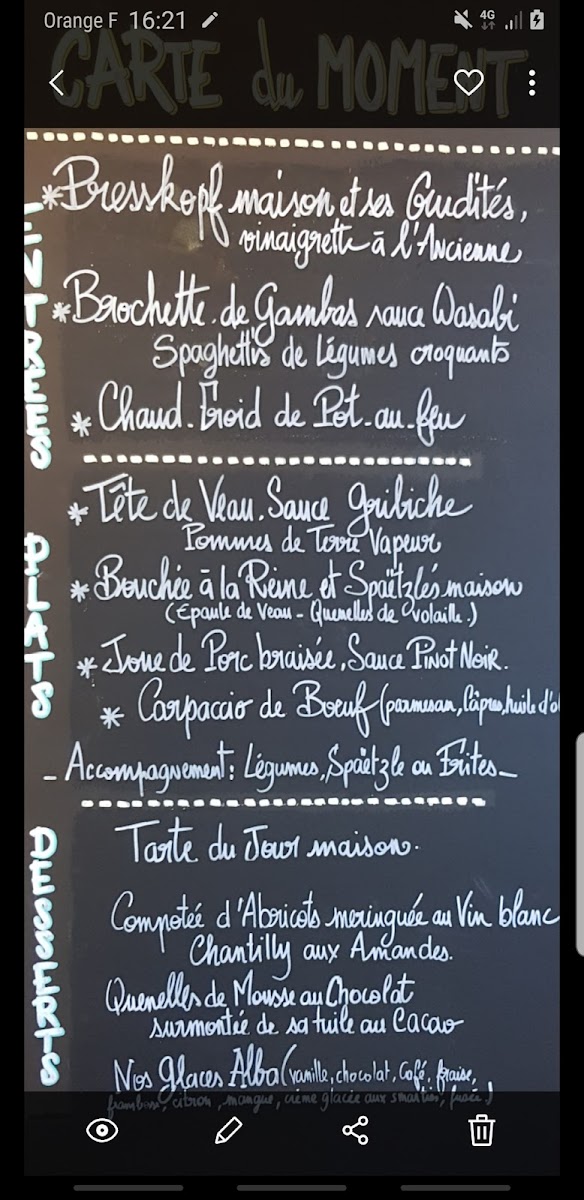 Orange F 16:21
4G
CARTE du MOMENT
ENTRÉES
* Presskopf maison et ses Crudités,
vinaigrette à l'Ancienne
* Brochette de Gambas sauce Wasabi
Spaghettis de Légumes croquants
* Chaud-Froid de Pot-au-feu
PLATS
* Tête de Veau, Sauce gribiche
Pommes de Terre Vapeur
* Bouchée à la Reine et Spaëtzlés maison
(Epaule de Veau - Quenelles de volaille.)
* Joue de Porc braisée, Sauce Pinot Noir.
* Carpaccio de Boeuf (parmesan, Câpres, huile d'ol
- Accompagnement: Légumes, Spaëtzle ou Frites -
DESSERTS
Tarte du Jour maison.
Compotée d'Abricots meringuée au Vin blanc
Chantilly aux Amandes.
Quenelles de Mousse au Chocolat
surmontée de sa tuile au Cacao
Nos Glaces Alba (vanille, chocolat, Café, fraise,
framboise, citron, mangue, crème glacée aux smarties,